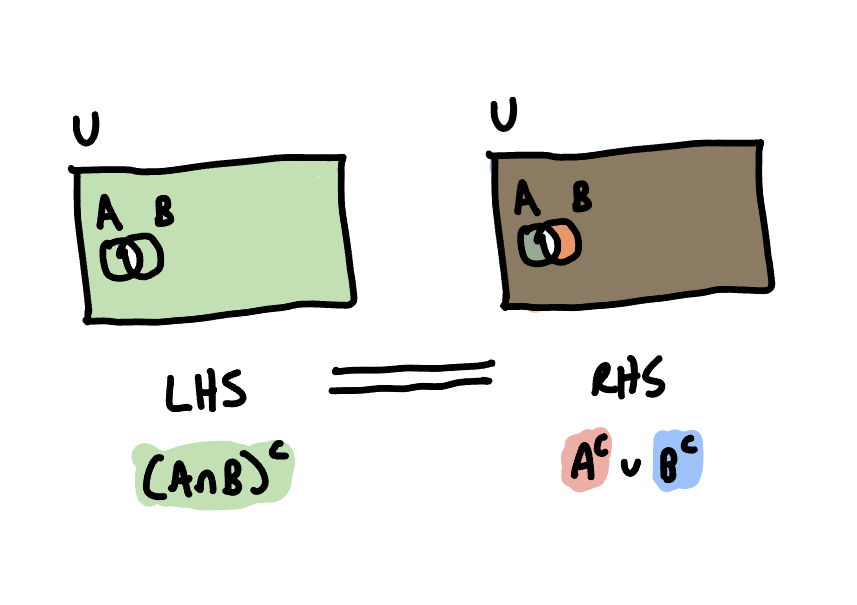 U U
A B A B
LHS = RHS
(A∩B)ᶜ Aᶜ ∪ Bᶜ